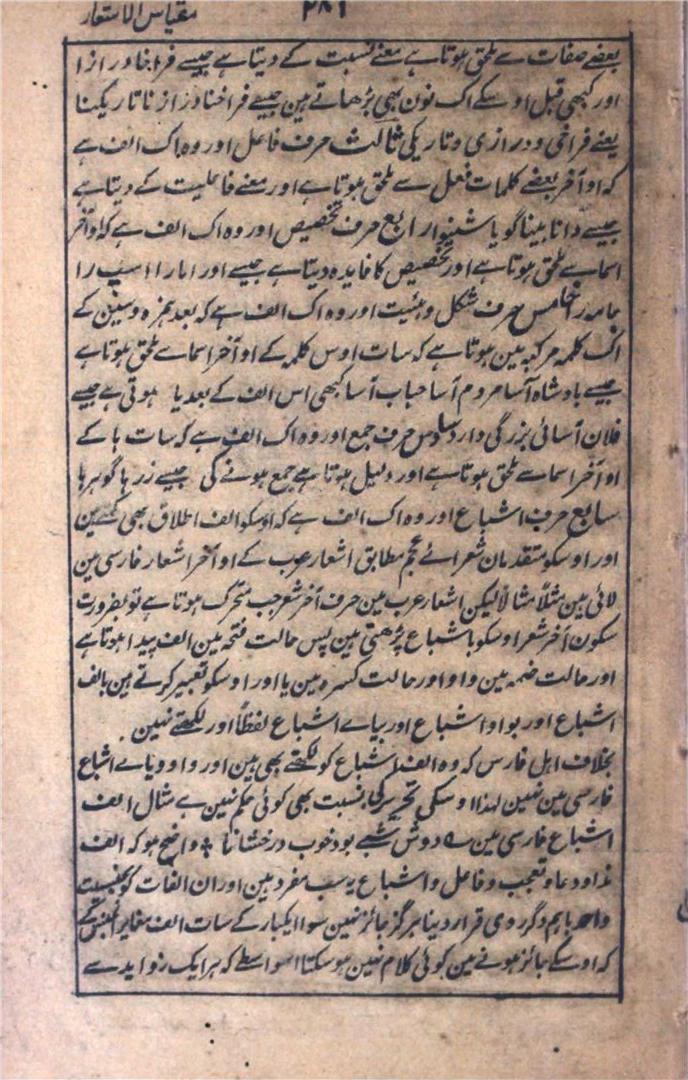 مقیاس الاشعار
۲۸۱
بعضے صفات سے ملحق ہوتا ہے معنے نسبت کے دیتا ہے جیسے فراخا درازا
اور کبھی قبل اوسکے اک نون بھی بڑھاتے ہین جیسے فراخنا درازنا تاریکنا
یعنے فراخی و درازی و تاریکی ثالث حرف فاعل اور وہ اک الف ہے
کہ اوآخر بعضے کلمات فعل سے ملحق ہوتا ہے اور معنے فاعلیت کے دیتا ہے
جیسے دانا بینا گویا شنوا رابع حرف تخصیص اور وہ اک الف ہے کہ اوآخر
اسما سے ملحق ہوتا ہے اور تخصیص کا فایدہ دیتا ہے جیسے اورا مارا اسپ را
جامہ را خامس حرف شکل و ہیئت اور وہ اک الف ہے کہ بعد ہمزہ و سین کے
اک کلمہ مرکبہ مین ہوتا ہے کہ سات اوس کلمہ کے اوآخر اسما سے ملحق ہوتا ہے
جیسے بادشاہ آسا مردم آسا حباب آسا کبھی اس الف کے بعد یا ہوتی ہے جیسے
فلان آسائی بزرگی دارد سادس حرف جمع اور وہ اک الف ہے کہ سات ہا کے
اوآخر اسما سے ملحق ہوتا ہے اور دلیل ہوتا ہے جمع ہونے کی جیسے زرہا گوہرہا
سابع حرف اشباع اور وہ اک الف ہے کہ اوسکو الف اطلاق بھی کہتے ہین
اور اوسکو متقدمان شعرائے عجم مطابق اشعار عرب کے اوآخر اشعار فارسی مین
لائی ہین مثلاً مثالاً لیکن اشعار عرب مین حرف آخر شعر جب متحرک ہوتا ہے تو بضرورت
سکون آخر شعر اوسکو باشباع پڑھتی ہین پس حالت فتحہ مین الف پیدا ہوتا ہے
اور حالت ضمہ مین واو اور حالت کسرہ مین یا اور اوسکو تعبیر کرتے ہین بالف
اشباع اور بواو اشباع اور بیاے اشباع لفظاً اور لکھتے نہین
بخلاف اہل فارس کہ وہ الف اشباع کو لکھتے بھی ہین اور واو و یاے اشباع
فارسی مین نہین لہذا اوسکی تحریر کی نسبت بھی کوئی حکم نہین ہے مثال الف
اشباع فارسی مین ے دوش شبے بود خوب درخشانا ٭ واضح ہو کہ الف
ندا و دعا و تعجب و فاعل و اشباع یہ سب مفرد ہین اور ان الفات کو بحیثیت
واحد باہم دگر روی قرار دینا ہرگز جائز نہین سوا ایکبار کے سات الف مغایر الجنس کے
کہ اوسکے جائز ہونے مین کوئی کلام نہین ہو سکتا اسواسطے کہ ہر ایک زواید سے